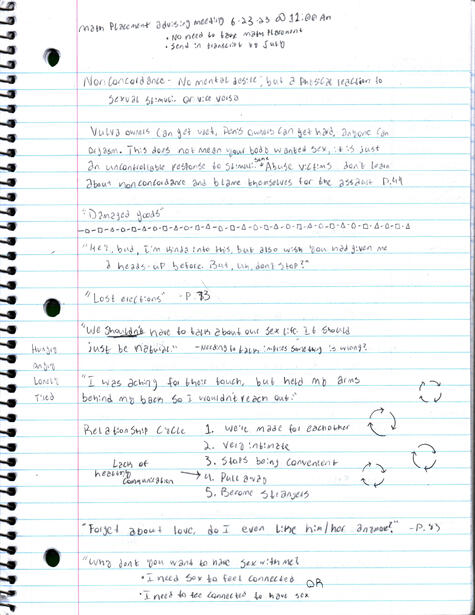 Math Placement advising meeting 6-23-23 @ 11:00 Am
• No need to take math Placement
• Send in transcript by July
Nonconcordance - No mental desire, but a Physical reaction to
sexual stimuli or vice versa
Vulva owners can get wet, Penis owners can get hard, anyone can
orgasm. This does not mean your body wanted sex, it is just
an uncontrollable response to stimuli. Some Abuse victims don't learn
about nonconcordance and blame themselves for the assault P.49
"Damaged goods"
"Hey, bud, I'm kinda into this, but also wish you had given me
a heads-up before. But, uh, don't stop?"
"Lost erections" - P.73
"We shouldn't have to talk about our sex life. It should
just be natural." - Needing to talk implies something is wrong?
Hungry
angry
Lonely
Tired
"I was aching for their touch, but held my arms
behind my back so I wouldn't reach out."
Relationship Cycle 1. We're made for eachother
2. Very intimate
3. Stops being convenient
Lack of
healthy
communication
4. Pull away
5. Become strangers
"Forget about love, do I even like him/her anymore?" - P.83
"Why don't you want to have sex with me?
• I need sex to feel connected OR
• I need to fee connected to have sex